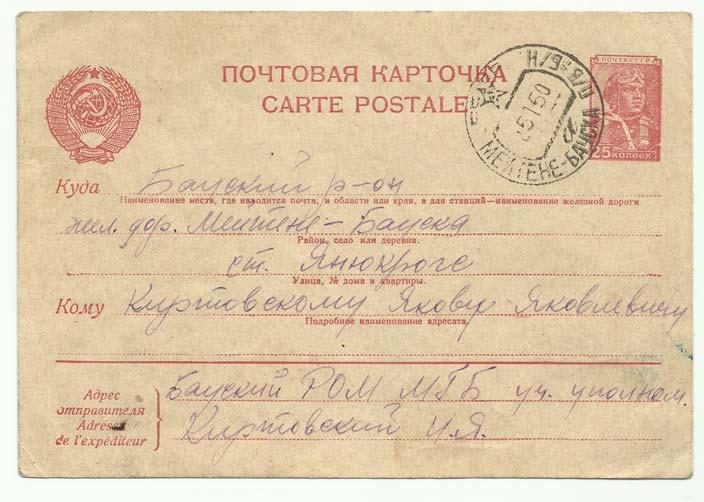 ПОЧТОВАЯ КАРТОЧКА
CARTE POSTALE
ПОЧТА СССР
25 КОПЕЕК
П/В №6/Н
5 1 50
МЕИТЕНЕ-БАУСКА
Куда Бауский р-он
Наименование места, где находится почта, и области или края, а для станций—наименование железной дороги.
жел. дор. Меитене-Бауска
Район, село или деревня.
ст. Янюкрогс
Улица, № дома и квартиры.
Кому Киртовскому Якову Яковлевичу
Подробное наименование адресата.
Адрес
отправителя
Adresse
de l'expéditeur
Бауский РОМ МГБ уч. уполном.
Киртовский И.Я.